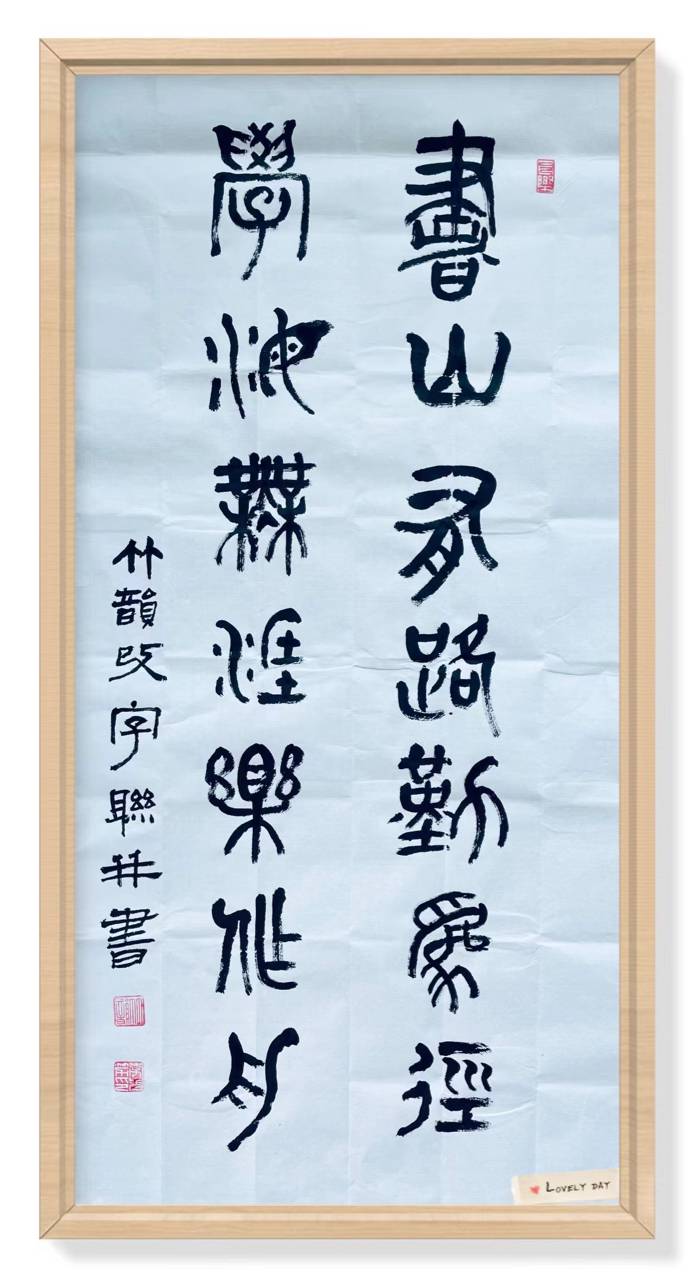 書山有路勤為徑
學海無涯樂作舟
竹韻改字聯并書
LOVELY DAY